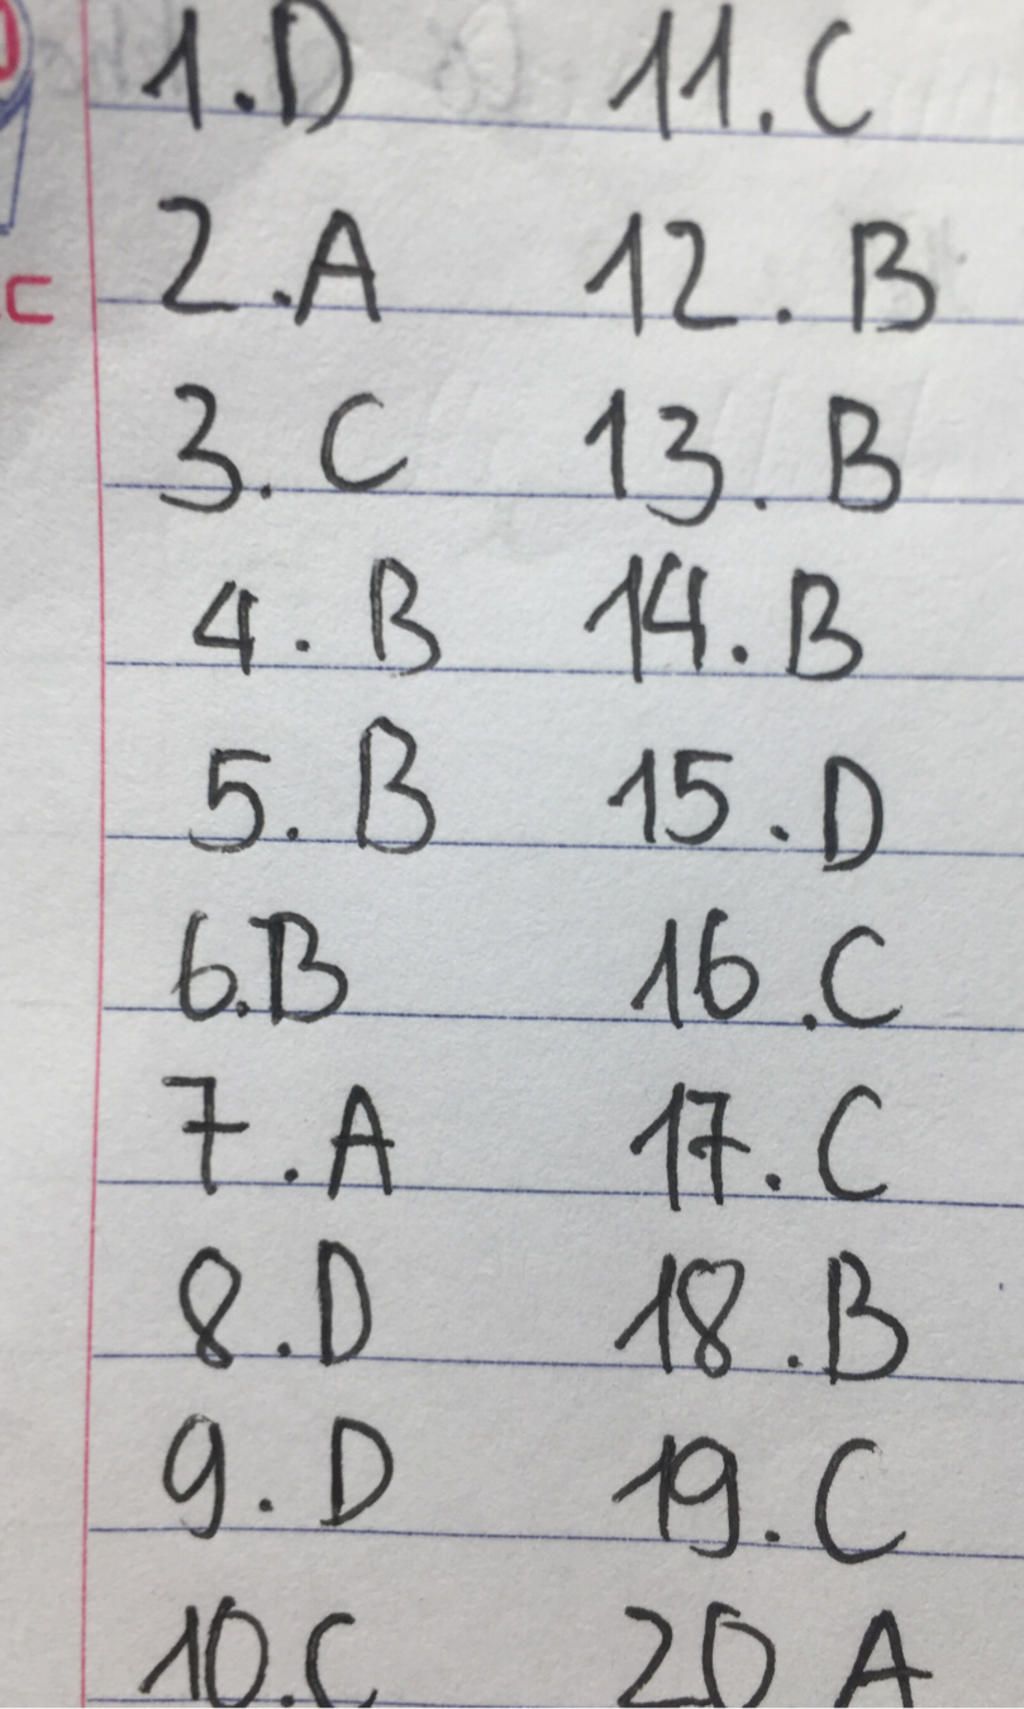 1.D 11.C
2.A 12.B
3.C 13.B
4.B 14.B
5.B 15.D
6.B 16.C
7.A 17.C
8.D 18.B
9.D 19.C
10.C 20 A
c